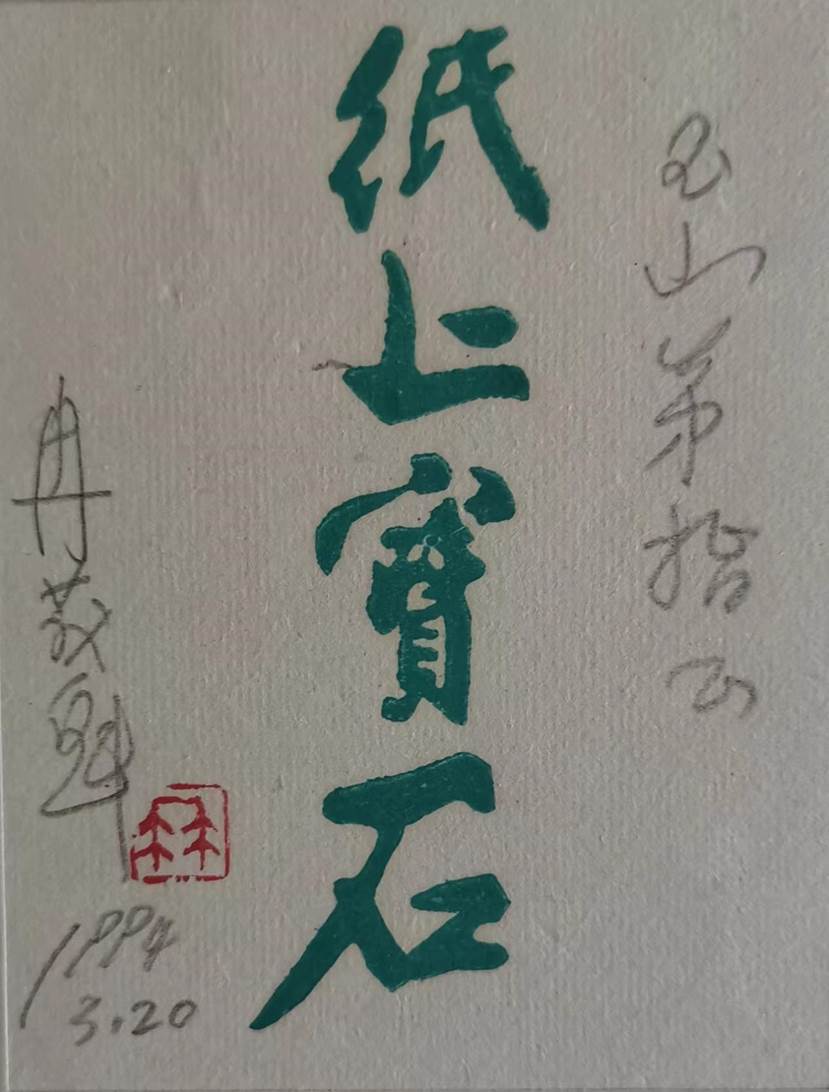 玉山弟指正
紙上寶石
冉茂魁
1994
3.20